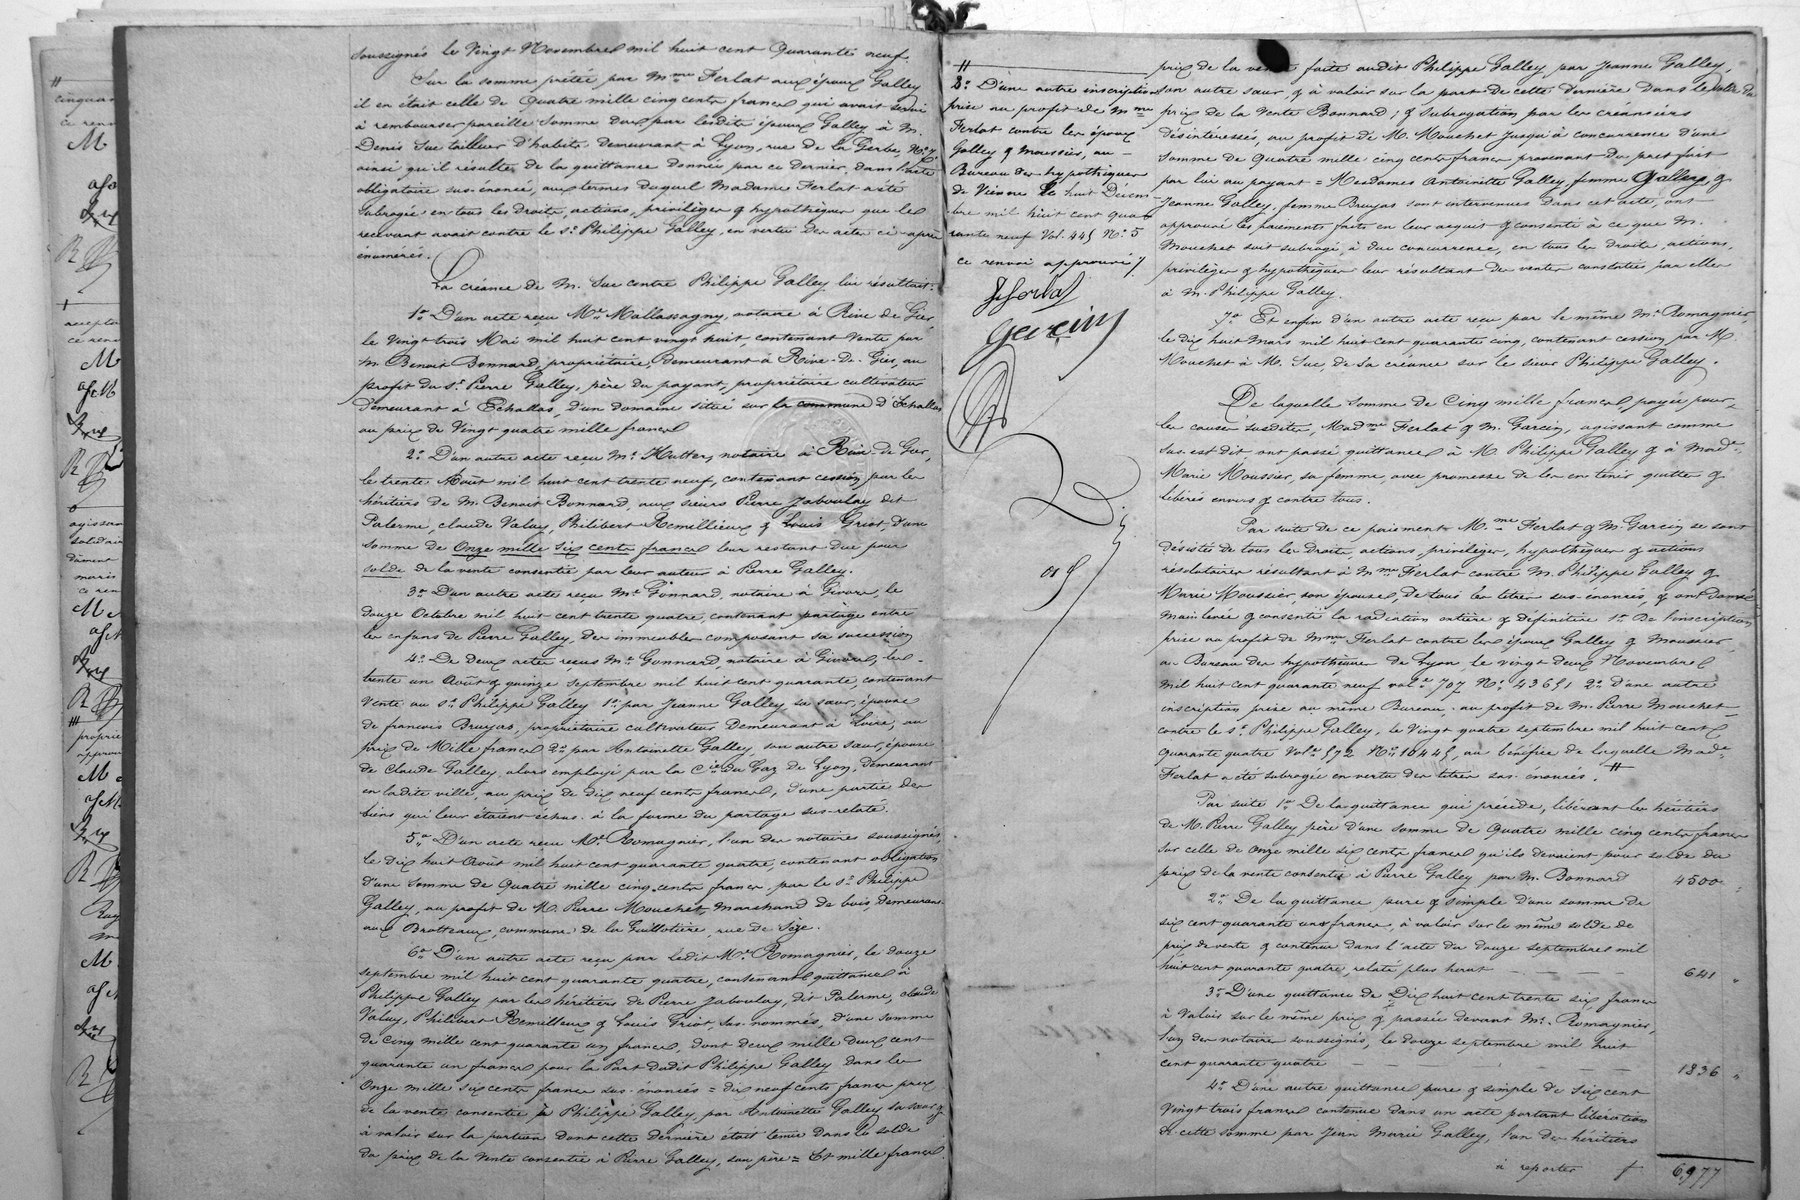 soussignés le Vingt Novembre mil huit cent Quarante neuf.
Sur la somme prêtée par Mme Ferlat aux époux Galley
il en était celle de Quatre mille cinq cents francs qui avait servi
à rembourser pareille somme due par lesdits époux Galley à M.
Denis Suc tailleur d'habits demeurant à Lyon, rue de la Gerbe, No 7
ainsi qu'il résulte de la quittance donnée par ce dernier, dans l'acte
obligatoire sus-énoncé, aux termes duquel Madame Ferlat a été
subrogée en tous les droits, actions, privilèges & hypothèques que le
recevant avait contre le sr Philippe Galley, en vertu des actes ci-après
énumérés.
La créance de M. Suc contre Philippe Galley lui résultait:
1o D'un acte reçu Me Mallassagny, notaire à Rive de Gier,
le Vingt trois Mai mil huit cent vingt huit, contenant Vente par
M. Benoit Bonnard, propriétaire, demeurant à Rive-de-Gier, au
profit du sr Pierre Galley, père du payant, propriétaire cultivateur
demeurant à Echallas, d'un domaine situé sur la commune d'Echallas
au prix de Vingt quatre mille francs
2o D'un autre acte reçu Me Hutter, notaire à Rive de Gier,
le trente Août mil huit cent trente neuf, contenant cession par les
héritiers de M. Benoit Bonnard, aux sieurs Pierre Jaboulay dit
Palerme, claude Valuy, Philibert Remillieux & Louis Griot, d'une
somme de Onze mille six cents francs leur restant due pour
solde de la vente consentie par leur auteur à Pierre Galley.
3o D'un autre acte reçu Me Gonnard, notaire à Givors, le
douze Octobre mil huit cent trente quatre, contenant partage entre
les enfans de Pierre Galley, des immeubles composant sa succession
4o De deux actes reçus Me Gonnard, notaire à Givors, les
trente un Août & quinze septembre mil huit cent quarante, contenant
Vente au sr Philippe Galley 1o par Jeanne Galley sa sœur, épouse
de francois Bruyas, propriétaire cultivateur demeurant à Loire, au
prix de Mille francs 2o par Antoinette Galley, son autre sœur, épouse
de Claude Galley, alors employé par la Cie du Gaz de Lyon, demeurant
en ladite ville, au prix de dix neuf cents francs, d'une partie des
biens qui leur étaient échus à la forme du partage sus-relaté.
5o D'un acte reçu Me Romagnier, l'un des notaires soussignés,
le dix huit Août mil huit cent quarante quatre, contenant obligation
d'une somme de Quatre mille cinq cents francs, par le sr Philippe
Galley, au profit de M. Pierre Mouchet, marchand de bois, demeurant
aux Brotteaux, commune de la Guillotière, rue de Sèze.
6o D'un autre acte reçu par ledit Me Romagnier, le douze
septembre mil huit cent quarante quatre, contenant quittance à
Philippe Galley par les héritiers de Pierre Jaboulay, dit Palerme, claude
Valuy, Philibert Remillieux & Louis Griot, sus-nommés, d'une somme
de cinq mille cent quarante un francs, dont deux mille deux cent
quarante un francs pour la Part dudit Philippe Galley dans les
Onze mille six cents francs sus-énoncés = dix neuf cents francs prix
de la vente consentie à Philippe Galley, par Antoinette Galley sa sœur, &
à valoir sur la portion dont cette dernière était tenue dans le solde
du prix de la Vente consentie à Pierre Galley, son père = Et mille francs
2o D'une autre inscription
prise au profit de Mme
Ferlat contre les époux
Galley & Moussier, au
Bureau des hypothèques
de Vienne le huit Décem-
bre mil huit cent qua-
rante neuf Vol. 445 No 5
ce renvoi approuvé
fferlat
Garcin
prix de la vente faite audit Philippe Galley par Jeanne Galley,
son autre sœur, & à valoir sur la part de cette dernière dans le solde du
prix de la Vente Bonnard; & subrogation par les créanciers
désintéressés, au profit de M. Mouchet jusqu'à concurrence d'une
somme de Quatre mille cinq cents francs provenant du prêt fait
par lui au payant = Mesdames Antoinette Galley, femme Galley, &
Jeanne Galley, femme Bruyas sont intervenues dans cet acte, ont
approuvé les paiements faits en leur acquit & consenti à ce que M.
Mouchet soit subrogé, à due concurrence, en tous les droits, actions,
privilèges & hypothèques leur résultant des ventes constatées par elles
à M. Philippe Galley.
7o Et enfin d'un autre acte reçu par le même Me Romagnier,
le dix huit Mars mil huit cent quarante cinq, contenant cession par M.
Mouchet à M. Suc, de sa créance sur le sieur Philippe Galley.
De laquelle somme de Cinq mille francs, payée pour
les causes susdites, Made Ferlat & M. Garcin, agissant comme
sus-est dit ont passé quittance à M. Philippe Galley & à Made
Marie Moussier, sa femme, avec promesse de les en tenir quittes &
libérés envers & contre tous.
Par suite de ce paiement Mme Ferlat & M. Garcin se sont
désistés de tous les droits, actions, privilèges, hypothèques & actions
résolutoires résultant à Mme Ferlat contre M. Philippe Galley &
Marie Moussier, son épouse, de tous les titres sus-énoncés, & ont donné
main levée & consenti la radiation entière & définitive 1o De l'inscription
prise au profit de Mme Ferlat contre les époux Galley & Moussier,
au Bureau des hypothèques de Lyon, le vingt deux Novembre
mil huit cent quarante neuf vole 707 No 43651 2o D'une autre
inscription prise au même Bureau, au profit de M. Pierre Mouchet
contre le sr Philippe Galley, le Vingt quatre septembre mil huit cent
quarante quatre Vole 572 No 16445, au bénéfice de laquelle Made
Ferlat a été subrogée en vertu des titres sus-énoncés. #
Par suite 1o De la quittance qui précède, libérant les héritiers
de M. Pierre Galley père d'une somme de Quatre mille cinq cents francs
sur celle de onze mille six cents francs qu'ils devaient pour solde du
prix de la vente consentie à Pierre Galley par M. Bonnard 4500 "
2o De la quittance pure & simple d'une somme de
six cent quarante un francs, à valoir sur le même solde de
prix de vente & contenue dans l'acte du douze septembre mil
huit cent quarante quatre, relaté plus haut 641 "
3o D'une quittance de Dix huit cent trente six francs
à Valoir sur le même prix & passée devant Me Romagnier,
l'un des notaires soussignés, le douze septembre mil huit
cent quarante quatre 1836 "
4o D'une autre quittance pure & simple de six cent
Vingt trois francs contenue dans un acte portant libération
de cette somme par Jean Marie Galley, l'un des héritiers
à reporter f 6,977